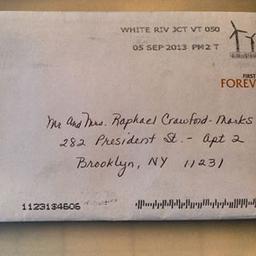 WHITE RIV JCT VT 050
05 SEP 2013 PM 2 T
FIRST
FOREV
Mr and Mrs. Raphael Crawford-Marks
282 President St. - Apt 2
Brooklyn, NY 11231
11231$4606